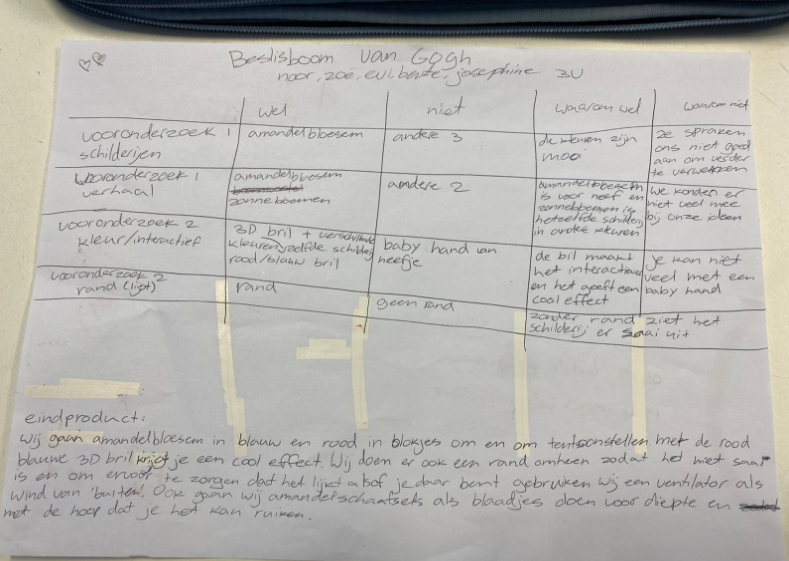 Beslisboom van Gogh
noor, zoë, evi, bente, josephine 3U
wel niet waarom wel waarom niet
vooronderzoek 1 schilderijen
amandelbloesem
andere 3
de kleuren zijn mooi
ze spraken ons niet goed aan om verder te verwerken
vooronderzoek 1 verhaal
amandelbloesem
zonnebloemen
andere 2
amandelbloesem is voor neef en zonnebloemen is hetzelfde schilderij in andre kleuren
we konden er niet veel mee bij onze ideen
vooronderzoek 2 kleur/interactief
3D bril + verschillende kleuren, zelfde schilderij rood/blauw bril
baby hand van neefje
de bil maakt het interactiever en het geeft een cool effect
je kan niet veel met een baby hand
vooronderzoek 2 rand (lijst)
rand
geen rand
zonder rand ziet het schilderij er saai uit
eindproduct:
Wij gaan amandelbloesem in blauw en rood in blokjes om en om tentoonstellen met de rood
blauwe 3D bril krijgt je een cool effect. Wij doen er ook een rand omheen zodat het niet saai
is en om ervoor te zorgen dat het lijkt alsof je daar bent gebruiken wij een ventilator als
wind van 'buiten'. Ook gaan wij amandelschaafsels als blaadjes doen voor diepte en
met de hoop dat je het kan ruiken.